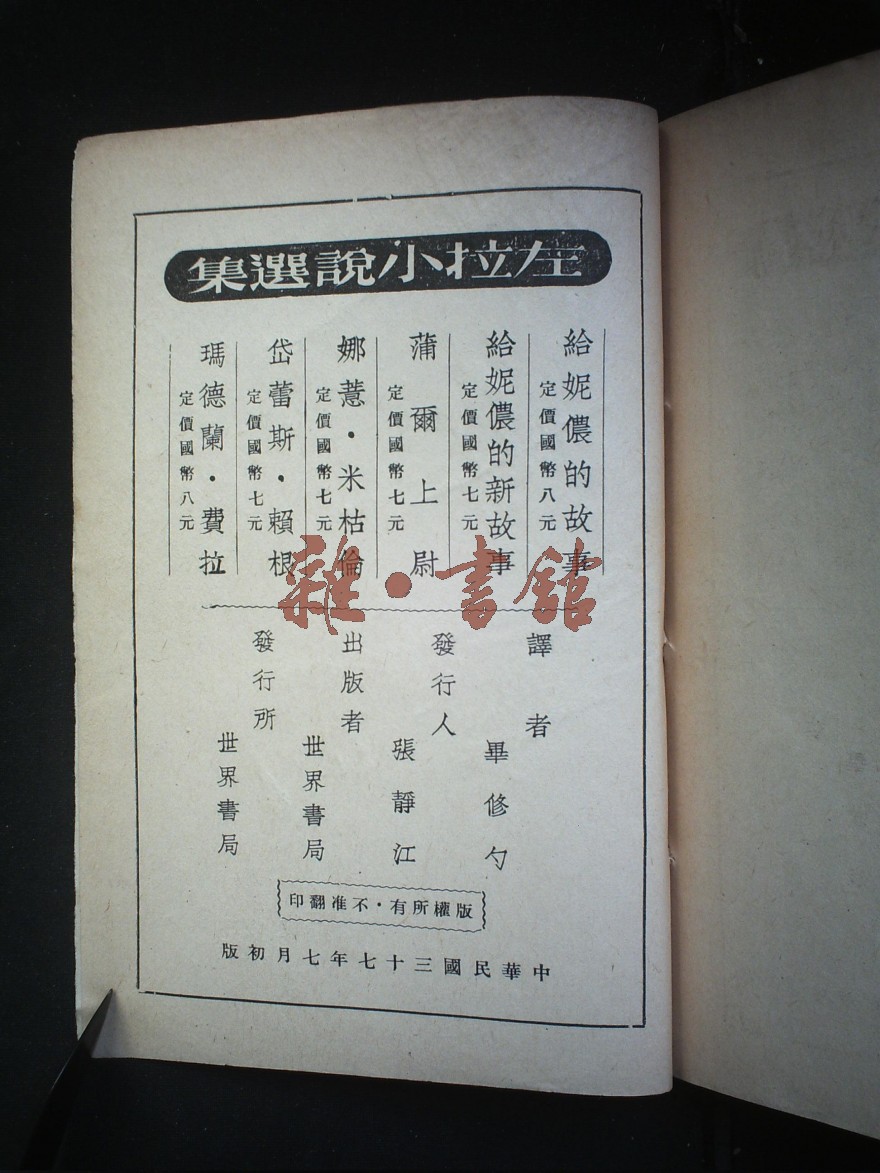 左拉小說選集
給妮儂的故事
定價國幣八元
給妮儂的新故事
定價國幣七元
蒲爾上尉
定價國幣七元
娜薏·米枯倫
定價國幣七元
岱蕾斯·賴根
定價國幣七元
瑪德蘭·費拉
定價國幣八元
雜·書館
譯者
畢修勺
發行人
張靜江
出版者
世界書局
發行所
世界書局
版權所有·不准翻印
中華民國三十七年七月初版